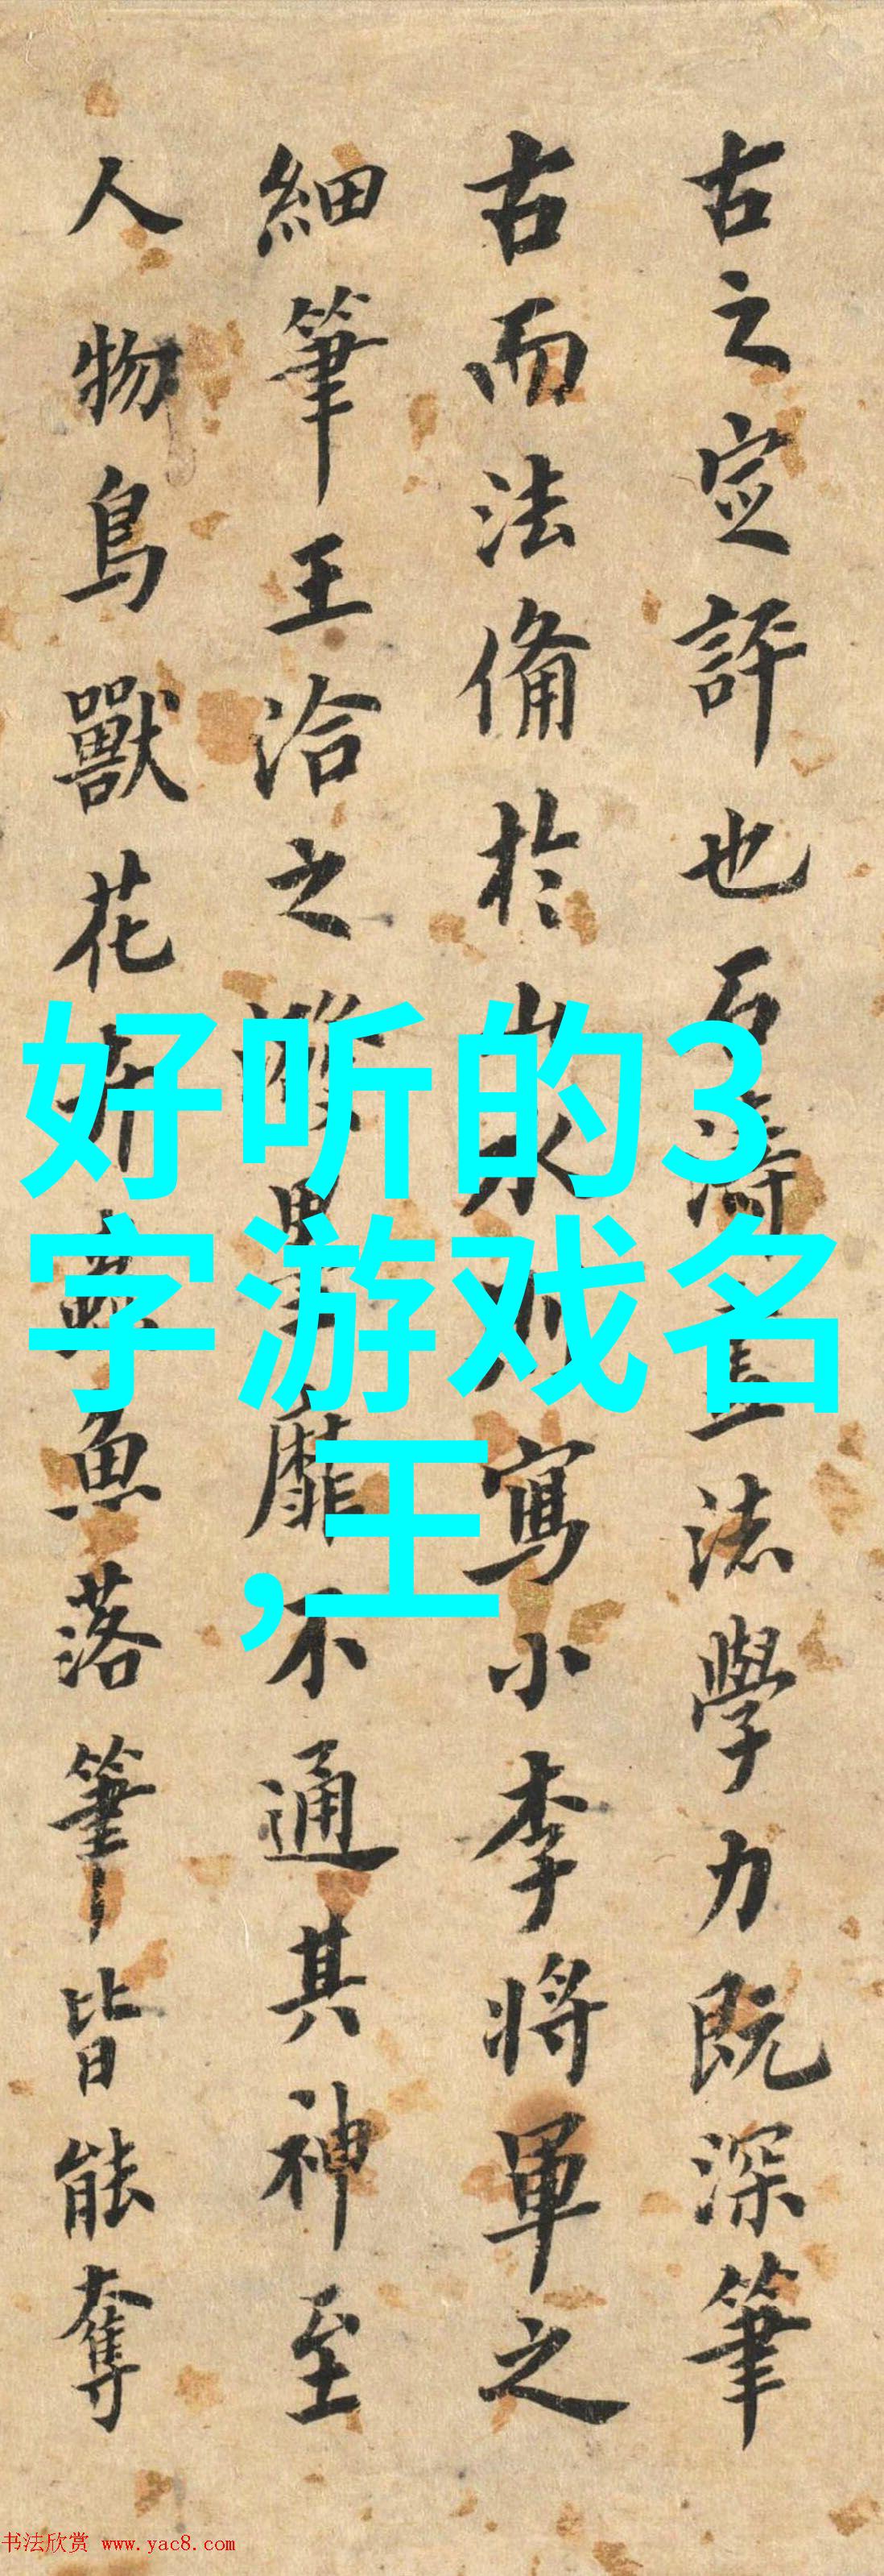 古之定評也石濤立法學力既深筆
古而法備於山水則寫小李將軍之
細筆王洽之潑墨靡不通其神至
人物鳥獸花卉蟲魚落筆皆能奪
好听的3
字游戏名
,王
书法欣赏 www.yac8.com